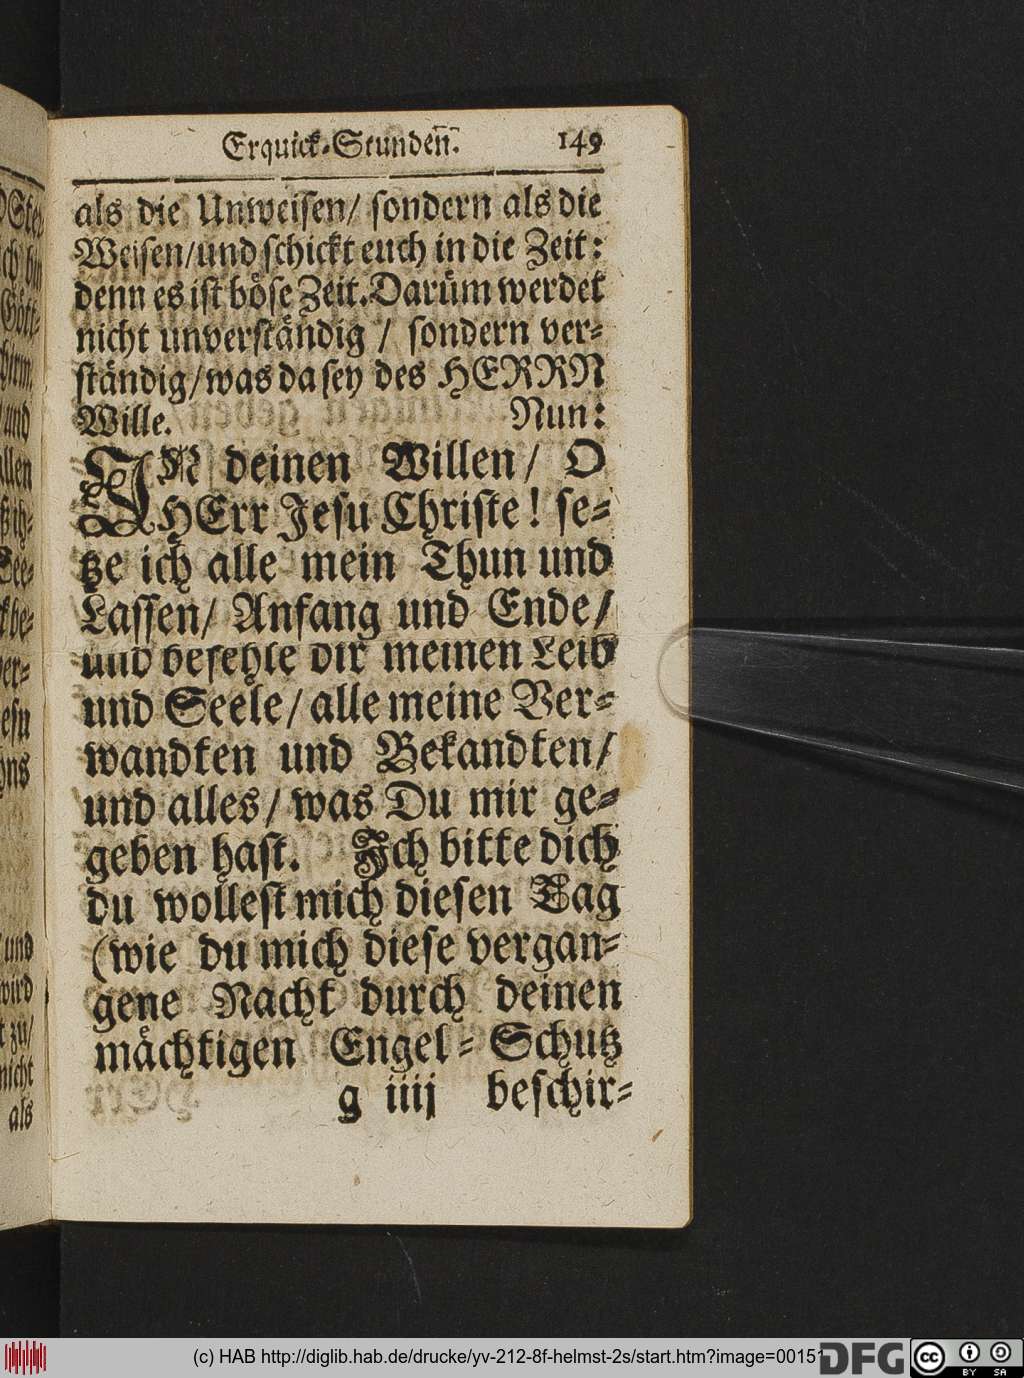 Erquick-Stunden. 149
als die Unweisen/ sondern als die
Weisen/und schickt euch in die Zeit:
denn es ist böse Zeit. Darüm werdet
nicht unverständig / sondern ver-
ständig/was da sey des HERRN
Wille. Nun:
IN deinen Willen/ O
HErr Jesu Christe! se-
tze ich alle mein Thun und
Lassen/ Anfang und Ende/
und befehle dir meinen Leib
und Seele/ alle meine Ver-
wandten und Bekandten/
und alles/ was Du mir ge-
geben hast. Ich bitte dich
du wollest mich diesen Tag
(wie du mich diese vergan-
gene Nacht durch deinen
mächtigen Engel-Schutz
g iiij beschir-
und
allen
esu
und
wird
zu/
nicht
als
(c) HAB http://diglib.hab.de/drucke/yv-212-8f-helmst-2s/start.htm?image=00151
DFG
cc BY SA